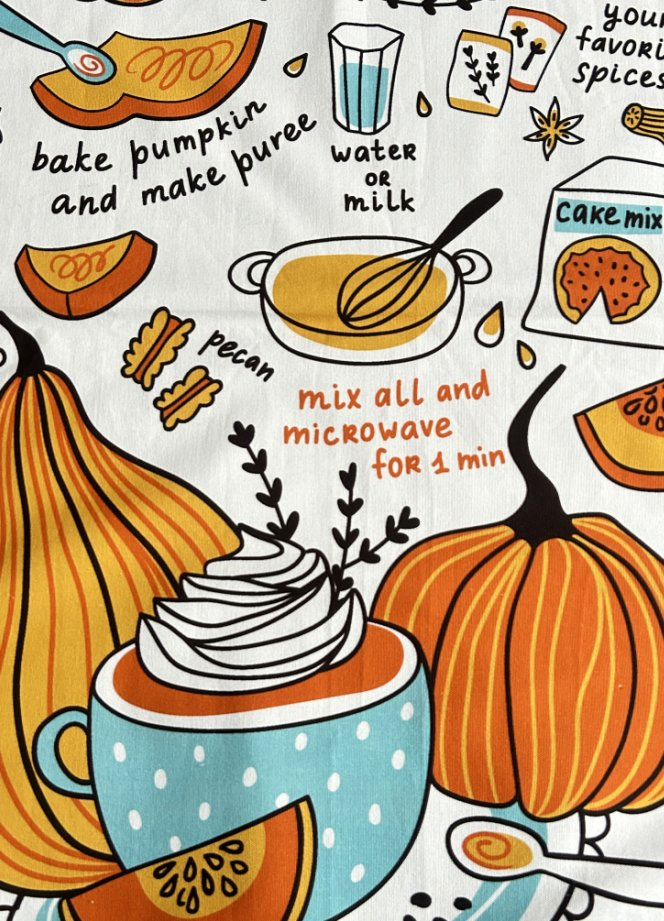 your
favori
spices
bake pumpkin
and make puree
water
or
milk
cake mix
pecan
mix all and
microwave
for 1 min